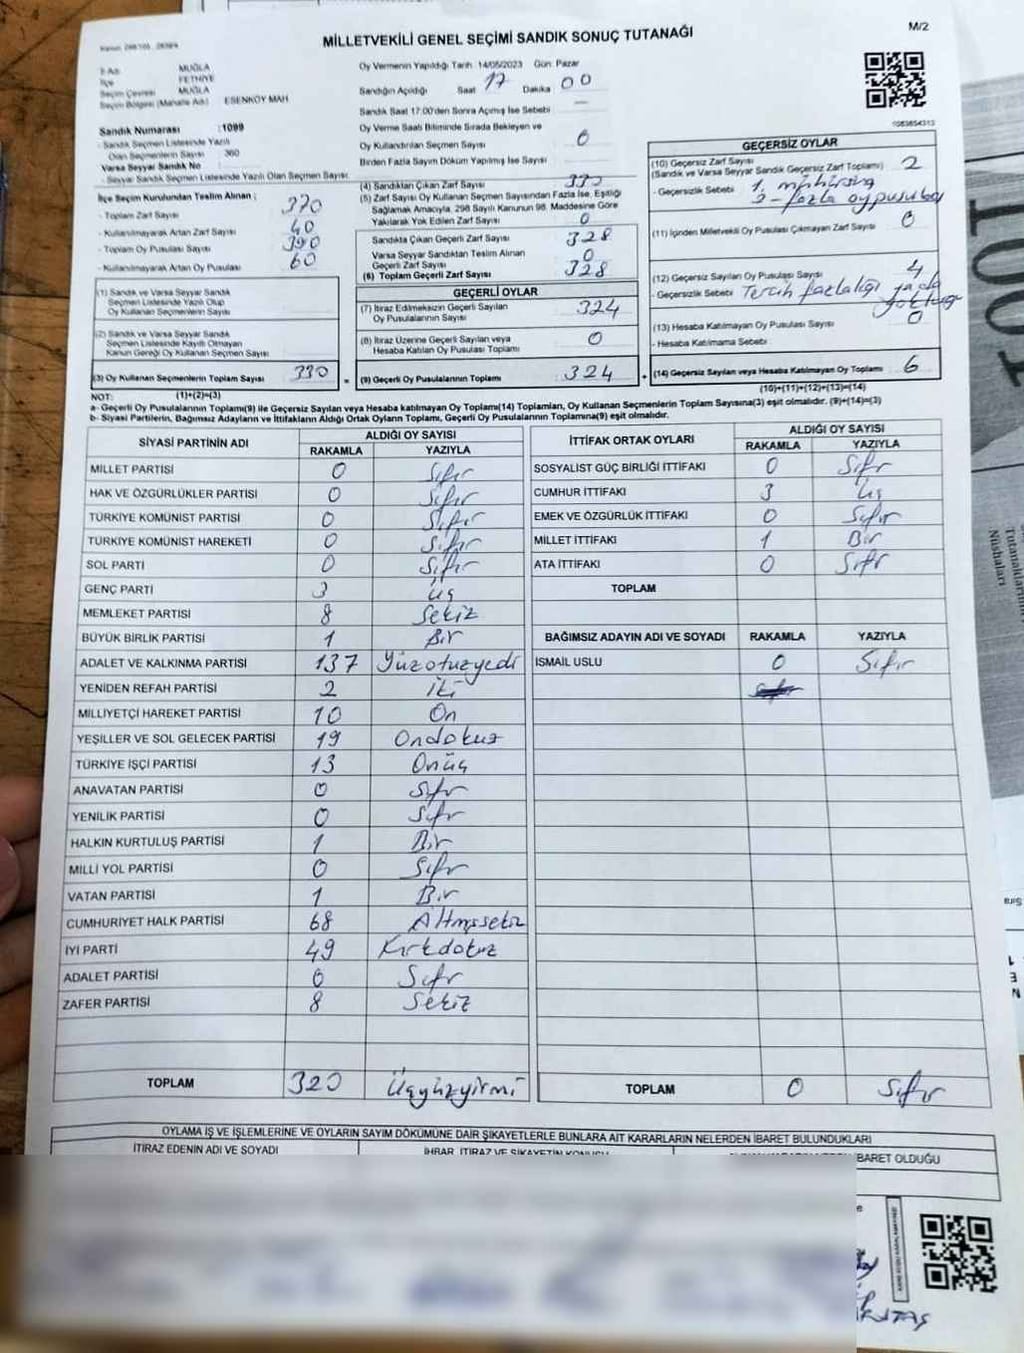 M/2
MİLLETVEKİLİ GENEL SEÇİMİ SANDIK SONUÇ TUTANAĞI
İl Adı MUĞLA
İlçe FETHİYE
Seçim Çevresi MUĞLA
Seçim Bölgesi (Mahalle Adı) ESENKÖY MAH
Oy Vermenin Yapıldığı Tarih 14/05/2023 Gün: Pazar
Sandığın Açıldığı Saat 17 Dakika 00
Sandık Saat 17:00'den Sonra Açılmış İse Sebebi —
Oy Verme Saati Bitiminde Sırada Bekleyen ve
Oy Kullandırılan Seçmen Sayısı 0
Birden Fazla Sayım Döküm Yapılmış İse Sayısı
Sandık Numarası :1099
- Sandık Seçmen Listesinde Yazılı
Olan Seçmenlerin Sayısı : 360
Varsa Seyyar Sandık No
- Seyyar Sandık Seçmen Listesinde Yazılı Olan Seçmen Sayısı
İlçe Seçim Kurulundan Teslim Alınan :
- Toplam Zarf Sayısı 370
- Kullanılmayarak Artan Zarf Sayısı 40
- Toplam Oy Pusulası Sayısı 390
- Kullanılmayarak Artan Oy Pusulası 60
(1) Sandık ve Varsa Seyyar Sandık
Seçmen Listesinde Yazılı Olup
Oy Kullanan Seçmenlerin Sayısı
(2) Sandık ve Varsa Seyyar Sandık
Seçmen Listesinde Kayıtlı Olmayan
Kanun Gereği Oy Kullanan Seçmen Sayısı
(3) Oy Kullanan Seçmenlerin Toplam Sayısı 330 =
(1)+(2)=(3)
(4) Sandıktan Çıkan Zarf Sayısı 330
(5) Zarf Sayısı Oy Kullanan Seçmen Sayısından Fazla İse, Eşitliği
Sağlamak Amacıyla, 298 Sayılı Kanunun 98. Maddesine Göre
Yakılarak Yok Edilen Zarf Sayısı 0
Sandıkta Çıkan Geçerli Zarf Sayısı 328
Varsa Seyyar Sandıktan Teslim Alınan
Geçerli Zarf Sayısı 0
(6) Toplam Geçerli Zarf Sayısı 328
GEÇERLİ OYLAR
(7) İtiraz Edilmeksizin Geçerli Sayılan
Oy Pusulalarının Sayısı 324
(8) İtiraz Üzerine Geçerli Sayılan veya
Hesaba Katılan Oy Pusulası Toplamı 0
(9) Geçerli Oy Pusulalarının Toplamı 324 +
1083854313
GEÇERSİZ OYLAR
(10) Geçersiz Zarf Sayısı
(Sandık ve Varsa Seyyar Sandık Geçersiz Zarf Toplamı) 2
- Geçersizlik Sebebi 1. mühürsüz
2 - fazla oy pusulası
(11) İçinden Milletvekili Oy Pusulası Çıkmayan Zarf Sayısı 0
(12) Geçersiz Sayılan Oy Pusulası Sayısı 4
- Geçersizlik Sebebi Tercih fazlalığı ya da
yokluğu
(13) Hesaba Katılmayan Oy Pusulası Sayısı 0
- Hesaba Katılmama Sebebi
(14) Geçersiz Sayılan veya Hesaba Katılmayan Oy Toplamı 6
(10)+(11)+(12)+(13)=(14)
NOT:
a- Geçerli Oy Pusulalarının Toplamı(9) ile Geçersiz Sayılan veya Hesaba katılmayan Oy Toplamı(14) Toplamları, Oy Kullanan Seçmenlerin Toplam Sayısına(3) eşit olmalıdır. (9)+(14)=(3)
b- Siyasi Partilerin, Bağımsız Adayların ve İttifakların Aldığı Ortak Oyların Toplamı, Geçerli Oy Pusulalarının Toplamına(9) eşit olmalıdır.
SİYASİ PARTİNİN ADI ALDIĞI OY SAYISI
RAKAMLA YAZIYLA
MİLLET PARTİSİ 0 Sıfır
HAK VE ÖZGÜRLÜKLER PARTİSİ 0 Sıfır
TÜRKİYE KOMÜNİST PARTİSİ 0 Sıfır
TÜRKİYE KOMÜNİST HAREKETİ 0 Sıfır
SOL PARTİ 0 Sıfır
GENÇ PARTİ 3 Üç
MEMLEKET PARTİSİ 8 Sekiz
BÜYÜK BİRLİK PARTİSİ 1 Bir
ADALET VE KALKINMA PARTİSİ 137 Yüzotuzyedi
YENİDEN REFAH PARTİSİ 2 İki
MİLLİYETÇİ HAREKET PARTİSİ 10 On
YEŞİLLER VE SOL GELECEK PARTİSİ 19 Ondokuz
TÜRKİYE İŞÇİ PARTİSİ 13 Onüç
ANAVATAN PARTİSİ 0 Sıfır
YENİLİK PARTİSİ 0 Sıfır
HALKIN KURTULUŞ PARTİSİ 1 Bir
MİLLİ YOL PARTİSİ 0 Sıfır
VATAN PARTİSİ 1 Bir
CUMHURİYET HALK PARTİSİ 68 Altmışsekiz
İYİ PARTİ 49 Kırkdokuz
ADALET PARTİSİ 0 Sıfır
ZAFER PARTİSİ 8 Sekiz
TOPLAM 320 Üçyüzyirmi
İTTİFAK ORTAK OYLARI ALDIĞI OY SAYISI
RAKAMLA YAZIYLA
SOSYALİST GÜÇ BİRLİĞİ İTTİFAKI 0 Sıfır
CUMHUR İTTİFAKI 3 Üç
EMEK VE ÖZGÜRLÜK İTTİFAKI 0 Sıfır
MİLLET İTTİFAKI 1 Bir
ATA İTTİFAKI 0 Sıfır
TOPLAM
BAĞIMSIZ ADAYIN ADI VE SOYADI RAKAMLA YAZIYLA
İSMAİL USLU 0 Sıfır
TOPLAM 0 Sıfır
OYLAMA İŞ VE İŞLEMLERİNE VE OYLARIN SAYIM DÖKÜMÜNE DAİR ŞİKAYETLERLE BUNLARA AİT KARARLARIN NELERDEN İBARET BULUNDUKLARI
İTİRAZ EDENİN ADI VE SOYADI
İHBAR, İTİRAZ VE ŞİKAYETİN KONUSU
BARET OLDUĞU
1001
Tutanaklarının
Nüshaları